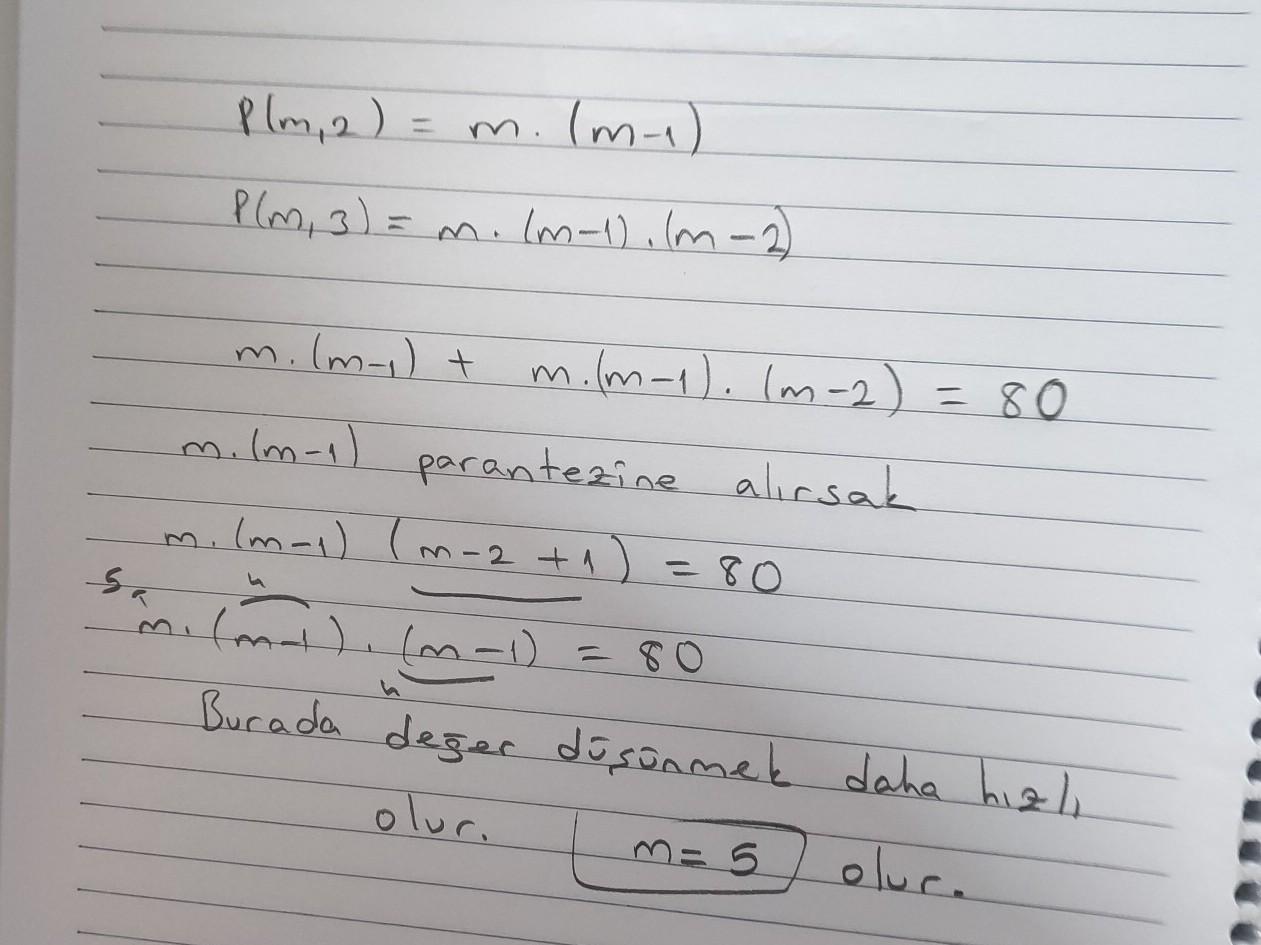 P(m,2) = m. (m-1)
P(m,3) = m. (m-1).(m-2)
m.(m-1) + m.(m-1). (m-2) = 80
m.(m-1) parantezine alırsak
m. (m-1) (m-2 +1) = 80
5 4
m. (m-1). (m-1) = 80
4
Burada değer düşünmek daha hızlı
olur. m= 5 olur.